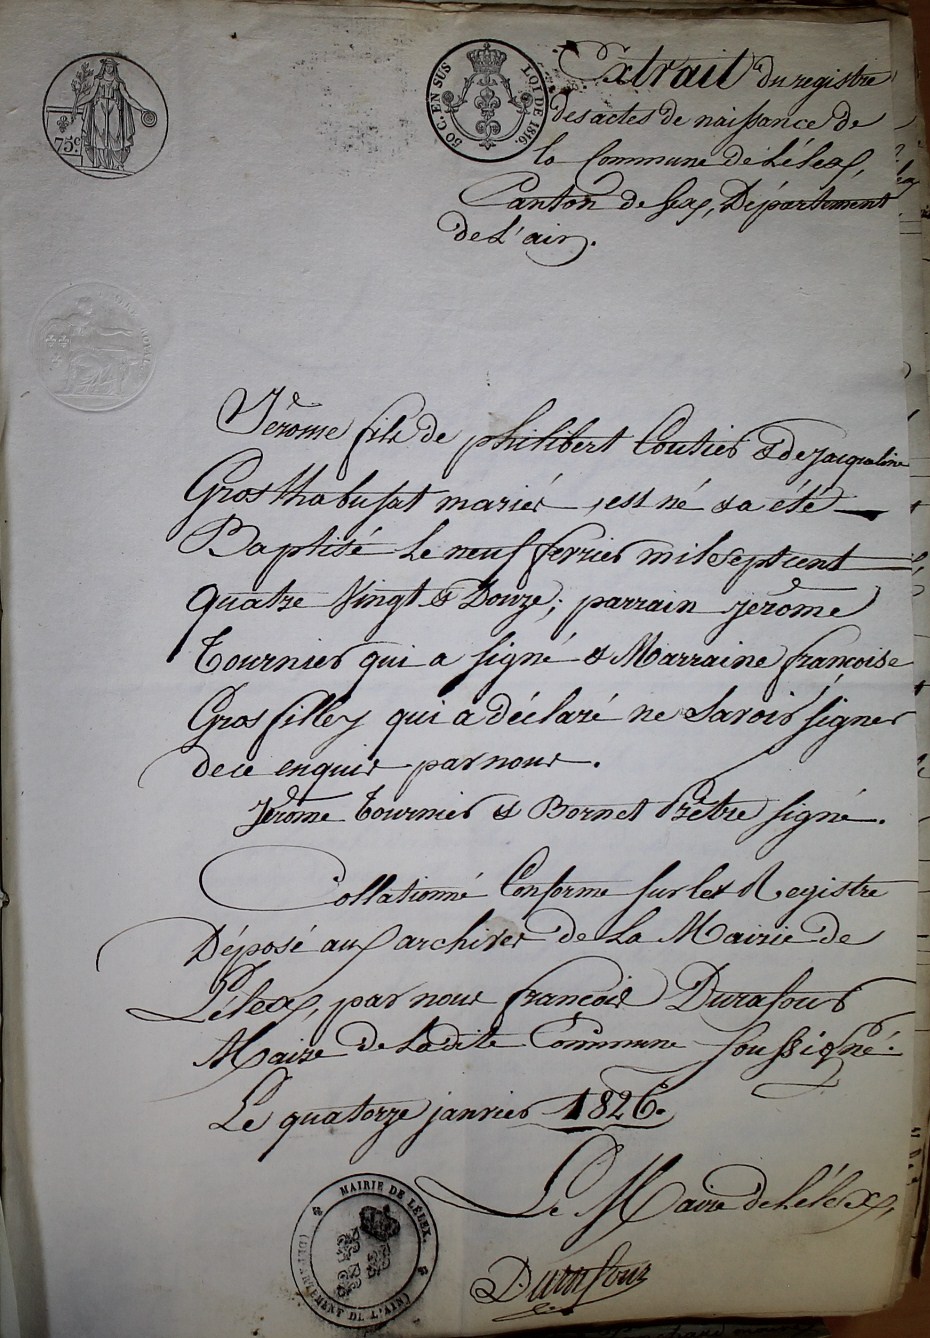 75c.
50 C. EN SUS LOI DE 1816.
Extrait du registre
des actes de naissance de
la Commune de Lélex,
Canton de Gex, Département
de L'ain.
Jérôme fils de philibert Coutier & de Jacqueline
Gros thabussat mariés, est né & a été
Baptisé le neuf fevrier mil sept cent
quatre Vingt & Douze; parrain jérôme
Tournier qui a signé & Marraine françoise
Grosfilley qui a déclaré ne Savoir signer
de ce enquis par nous.
Jérôme Tournier & Bornet Prêtre signé.
Collationné Conforme sur les Registre
Déposé aux archives de La Mairie de
Lélex, par nous françois Durafour
Maire de Ladite Commune soussigné.
Le quatorze janvier 1826.
Le Maire de Lélex,
Durafour
MAIRIE DE LÉLEX.
(DÉPARTEMENT DE L'AIN)